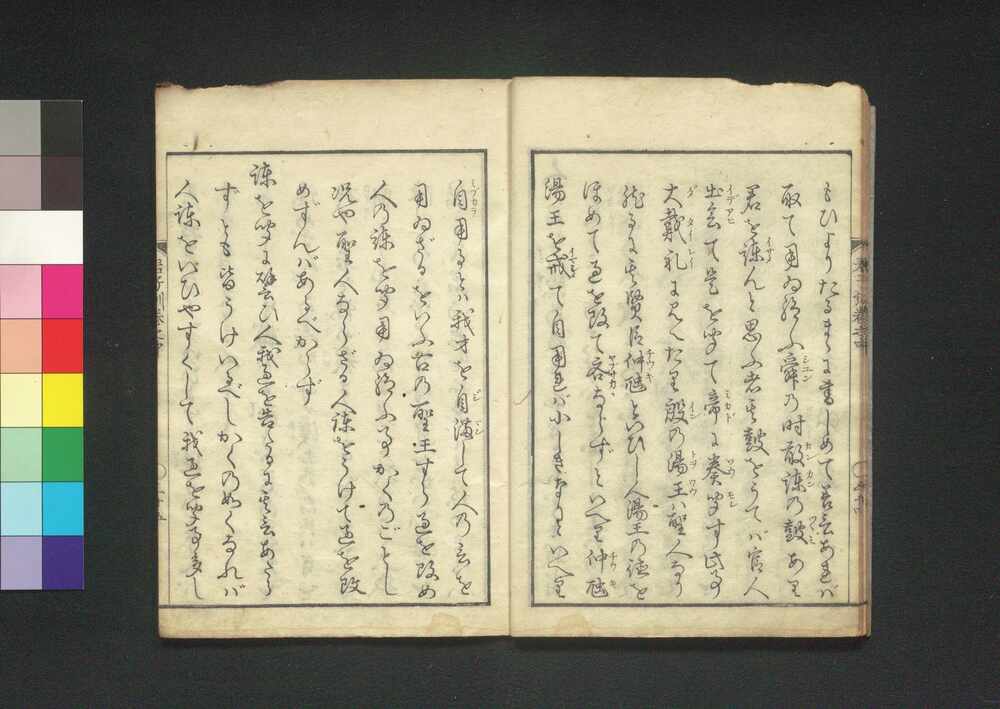 もひよりたるまゝに書しめて善言あれば
取て用ゐ給ふ舜の時敢諫の鼓あり
君を諫んと思ふ者其鼓をうてば官人
出会て是を聞て帝に奏聞す此事
大戴礼に見へたり殷の湯王は聖人なり
然るに其賢臣仲虺といひし人湯王の徳を
ほめて過を改て吝ならずといへり仲虺
湯王を戒て自用れば小しきなりといへり
自用るとは我才を自満して人の言を
用ゐざるをいふ古の聖王すら過を改め
人の諫を聞用ゐ給ふ事かくのごとし
況や聖人ならざる人諫をうけて過を改
めずんばあるべからず
諫を聞に譬ひ人我過を告るに其言あたら
ずとも皆うけいるべしかくのめくなれば
人諫をいひやすくして我過を聞事多し